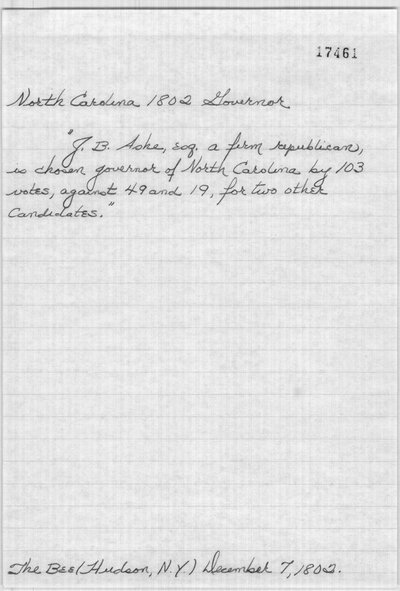 17461
North Carolina 1802 Governor
"J. B. Ashe, esq. a firm republican,
is chosen governor of North Carolina by 103
votes, against 49 and 19, for two other
Candidates."
The Bee (Hudson, N.Y.) December 7, 1802.